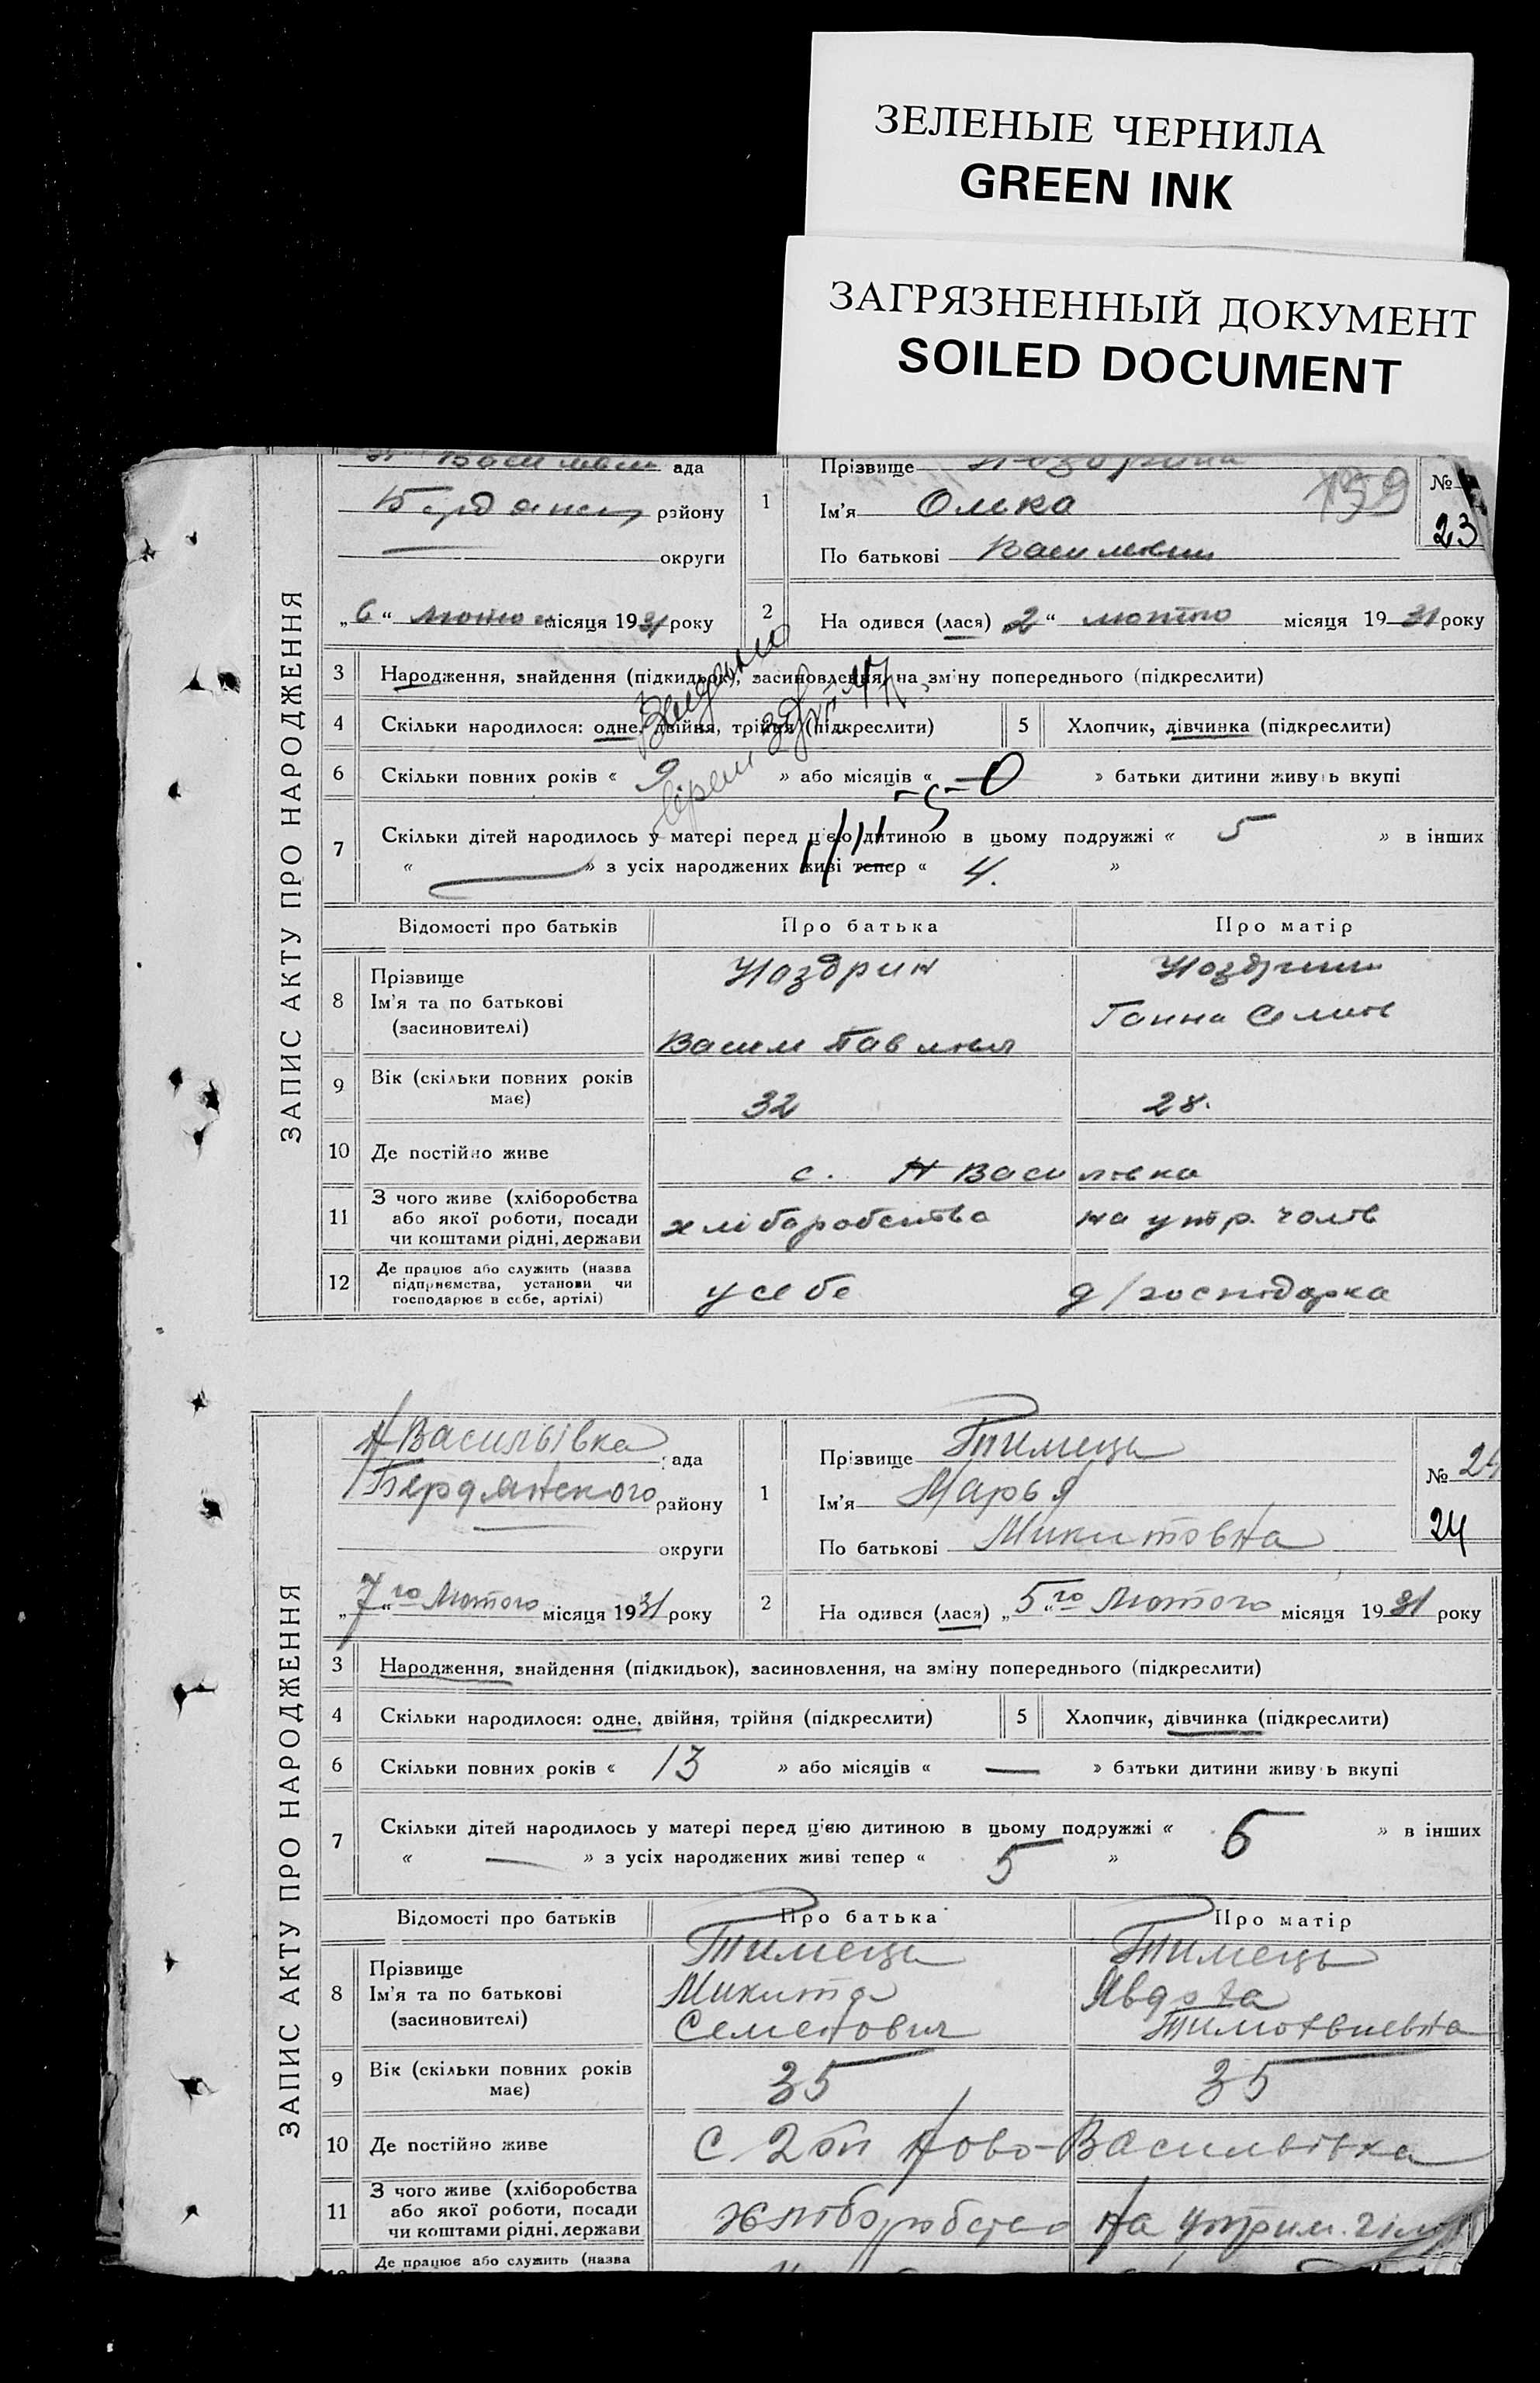 ЗЕЛЕНЫЕ ЧЕРНИЛА
GREEN INK
ЗАГРЯЗНЕННЫЙ ДОКУМЕНТ
SOILED DOCUMENT
ЗАПИС АКТУ ПРО НАРОДЖЕННЯ
ада
району
округи
„6“ місяця 1931 року
1
Прізвище
Ім'я Олька
По батькові
159
№
23
2 На одився (лася) „2“ лютого місяця 1931 року
3 Народження, знайдення (підкидьок), засиновлення, на зміну попереднього (підкреслити)
4 Скільки народилося: одне, двійня, трійня (підкреслити) 5 Хлопчик, дівчинка (підкреслити)
6 Скільки повних років « 9 » або місяців « » батьки дитини живуть вкупі
7 Скільки дітей народилось у матері перед цією дитиною в цьому подружжі « 5 » в інших
« — » з усіх народжених живі тепер « 4. »
Відомості про батьків Про батька Про матір
8 Прізвище
Ім'я та по батькові
(засиновителі)
Ноздрин
Васил
Ганна
9 Вік (скільки повних років має) 32 28.
10 Де постійно живе с. Н Василівка
11 З чого живе (хліборобства
або якої роботи, посади
чи коштами рідні, держави
хліборобство на утр. чолов
12 Де працює або служить (назва
підприємства, установи чи
господарює в себе, артілі)
у себе д/господарка
ЗАПИС АКТУ ПРО НАРОДЖЕННЯ
Н Васильівка ада
Бердянського району
— округи
„7го“ Лютого місяця 1931 року
1
Прізвище Тимець
Ім'я Марья
По батькові Микитовна
№ 24
24
2 На одився (лася) „5го“ Лютого місяця 1931 року
3 Народження, знайдення (підкидьок), засиновлення, на зміну попереднього (підкреслити)
4 Скільки народилося: одне, двійня, трійня (підкреслити) 5 Хлопчик, дівчинка (підкреслити)
6 Скільки повних років « 13 » або місяців « — » батьки дитини живуть вкупі
7 Скільки дітей народилось у матері перед цією дитиною в цьому подружжі « 6 » в інших
« — » з усіх народжених живі тепер « 5 »
Відомості про батьків Про батька Про матір
8 Прізвище
Ім'я та по батькові
(засиновителі)
Тимець Тимець
Микита
Семенович
9 Вік (скільки повних років має) 35 35
10 Де постійно живе С 2 Ново-Васильівка
11 З чого живе (хліборобства
або якої роботи, посади
чи коштами рідні, держави
Хліборобство На утрим.
Де працює або служить (назва